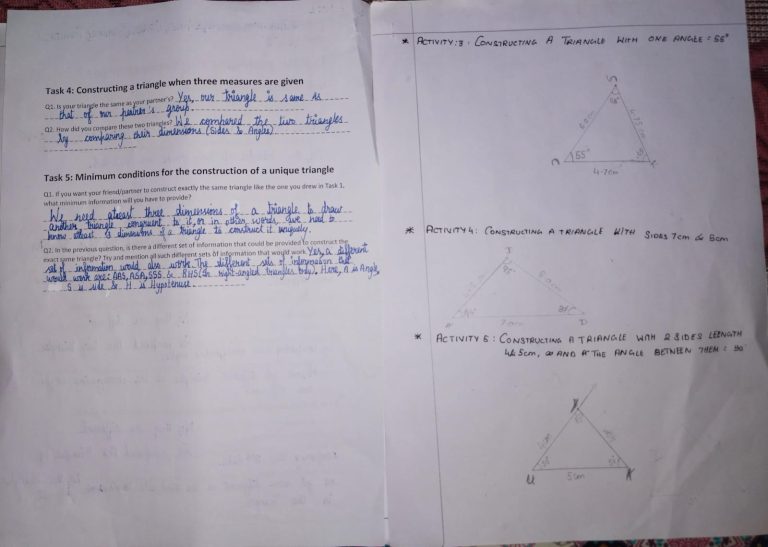 Task 4: Constructing a triangle when three measures are given
Q1. Is your triangle the same as your partner's? Yes, our triangle is same as
that of our partner's group.
Q2. How did you compare these two triangles? We compared the two triangles
by comparing their dimensions (Sides & Angles)
Task 5: Minimum conditions for the construction of a unique triangle
Q1. If you want your friend/partner to construct exactly the same triangle like the one you drew in Task 1,
what minimum information will you have to provide?
We need atleast three dimensions of a triangle to draw
another triangle congruent to it, or in other words, we need to
know atleast 3 dimensions of a triangle to construct it uniquely.
Q2. In the previous question, is there a different set of information that could be provided to construct the
exact same triangle? Try and mention all such different sets of information that would work. Yes, a different
set of information would also work. The different sets of information that
would work are: AAS, ASA, SSS & RHS (in right-angled triangles only). Here, A is Angle,
S is side & H is Hypotenuse.
* ACTIVITY: 3: CONSTRUCTING A TRIANGLE WITH ONE ANGLE = 55°
55°
4.7cm
* ACTIVITY 4: CONSTRUCTING A TRIANGLE WITH SIDES 7cm & 6cm
J
D
7cm
* ACTIVITY 5: CONSTRUCTING A TRIANGLE WITH 2 SIDES LEENGTH
4& 5cm, AND THE ANGLE BETWEEN THEM =
4cm
U
5cm
K